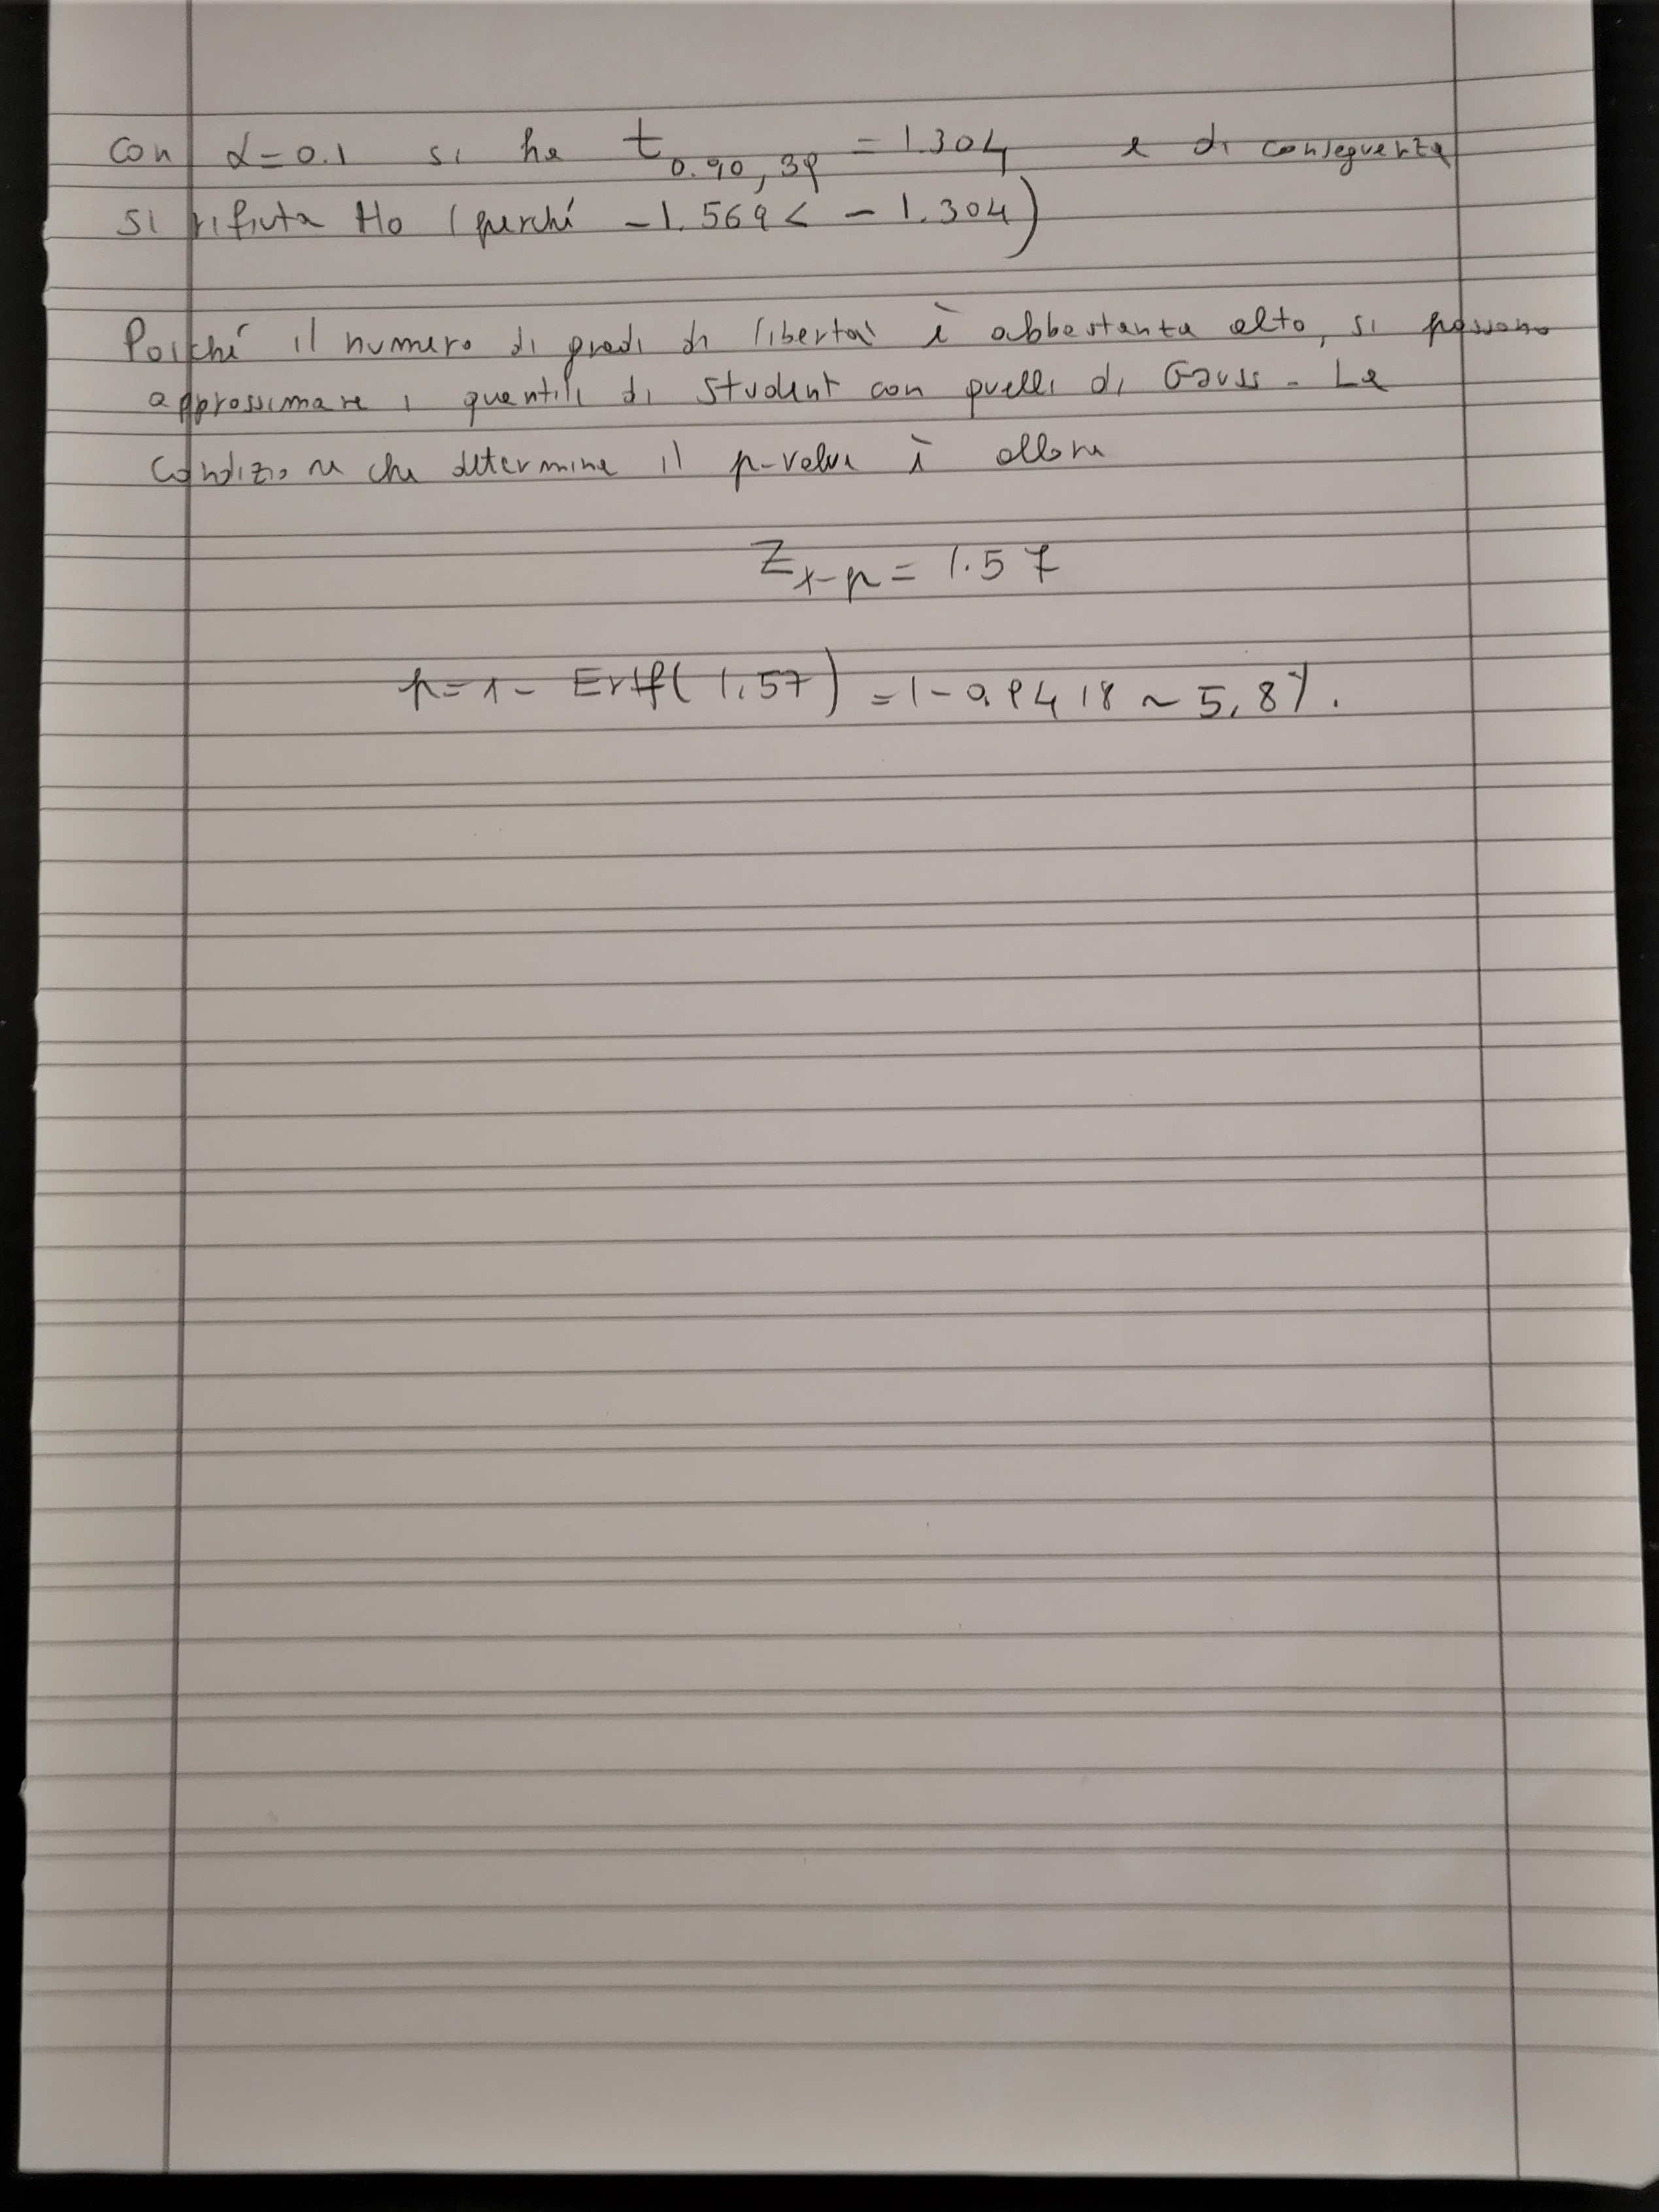 con α=0.1 si ha t0.90,39 = 1.304 e di conseguenza
si rifiuta H0 (perché -1.569 < -1.304)
Poiché il numero di gradi di libertà è abbastanza alto, si possono
approssimare i quantili di Student con quelli di Gauss. La
condizione che determina il p-value è allora
Z1-p = 1.57
p=1- Erf(1.57) = 1-0.9418 ~ 5,8%.